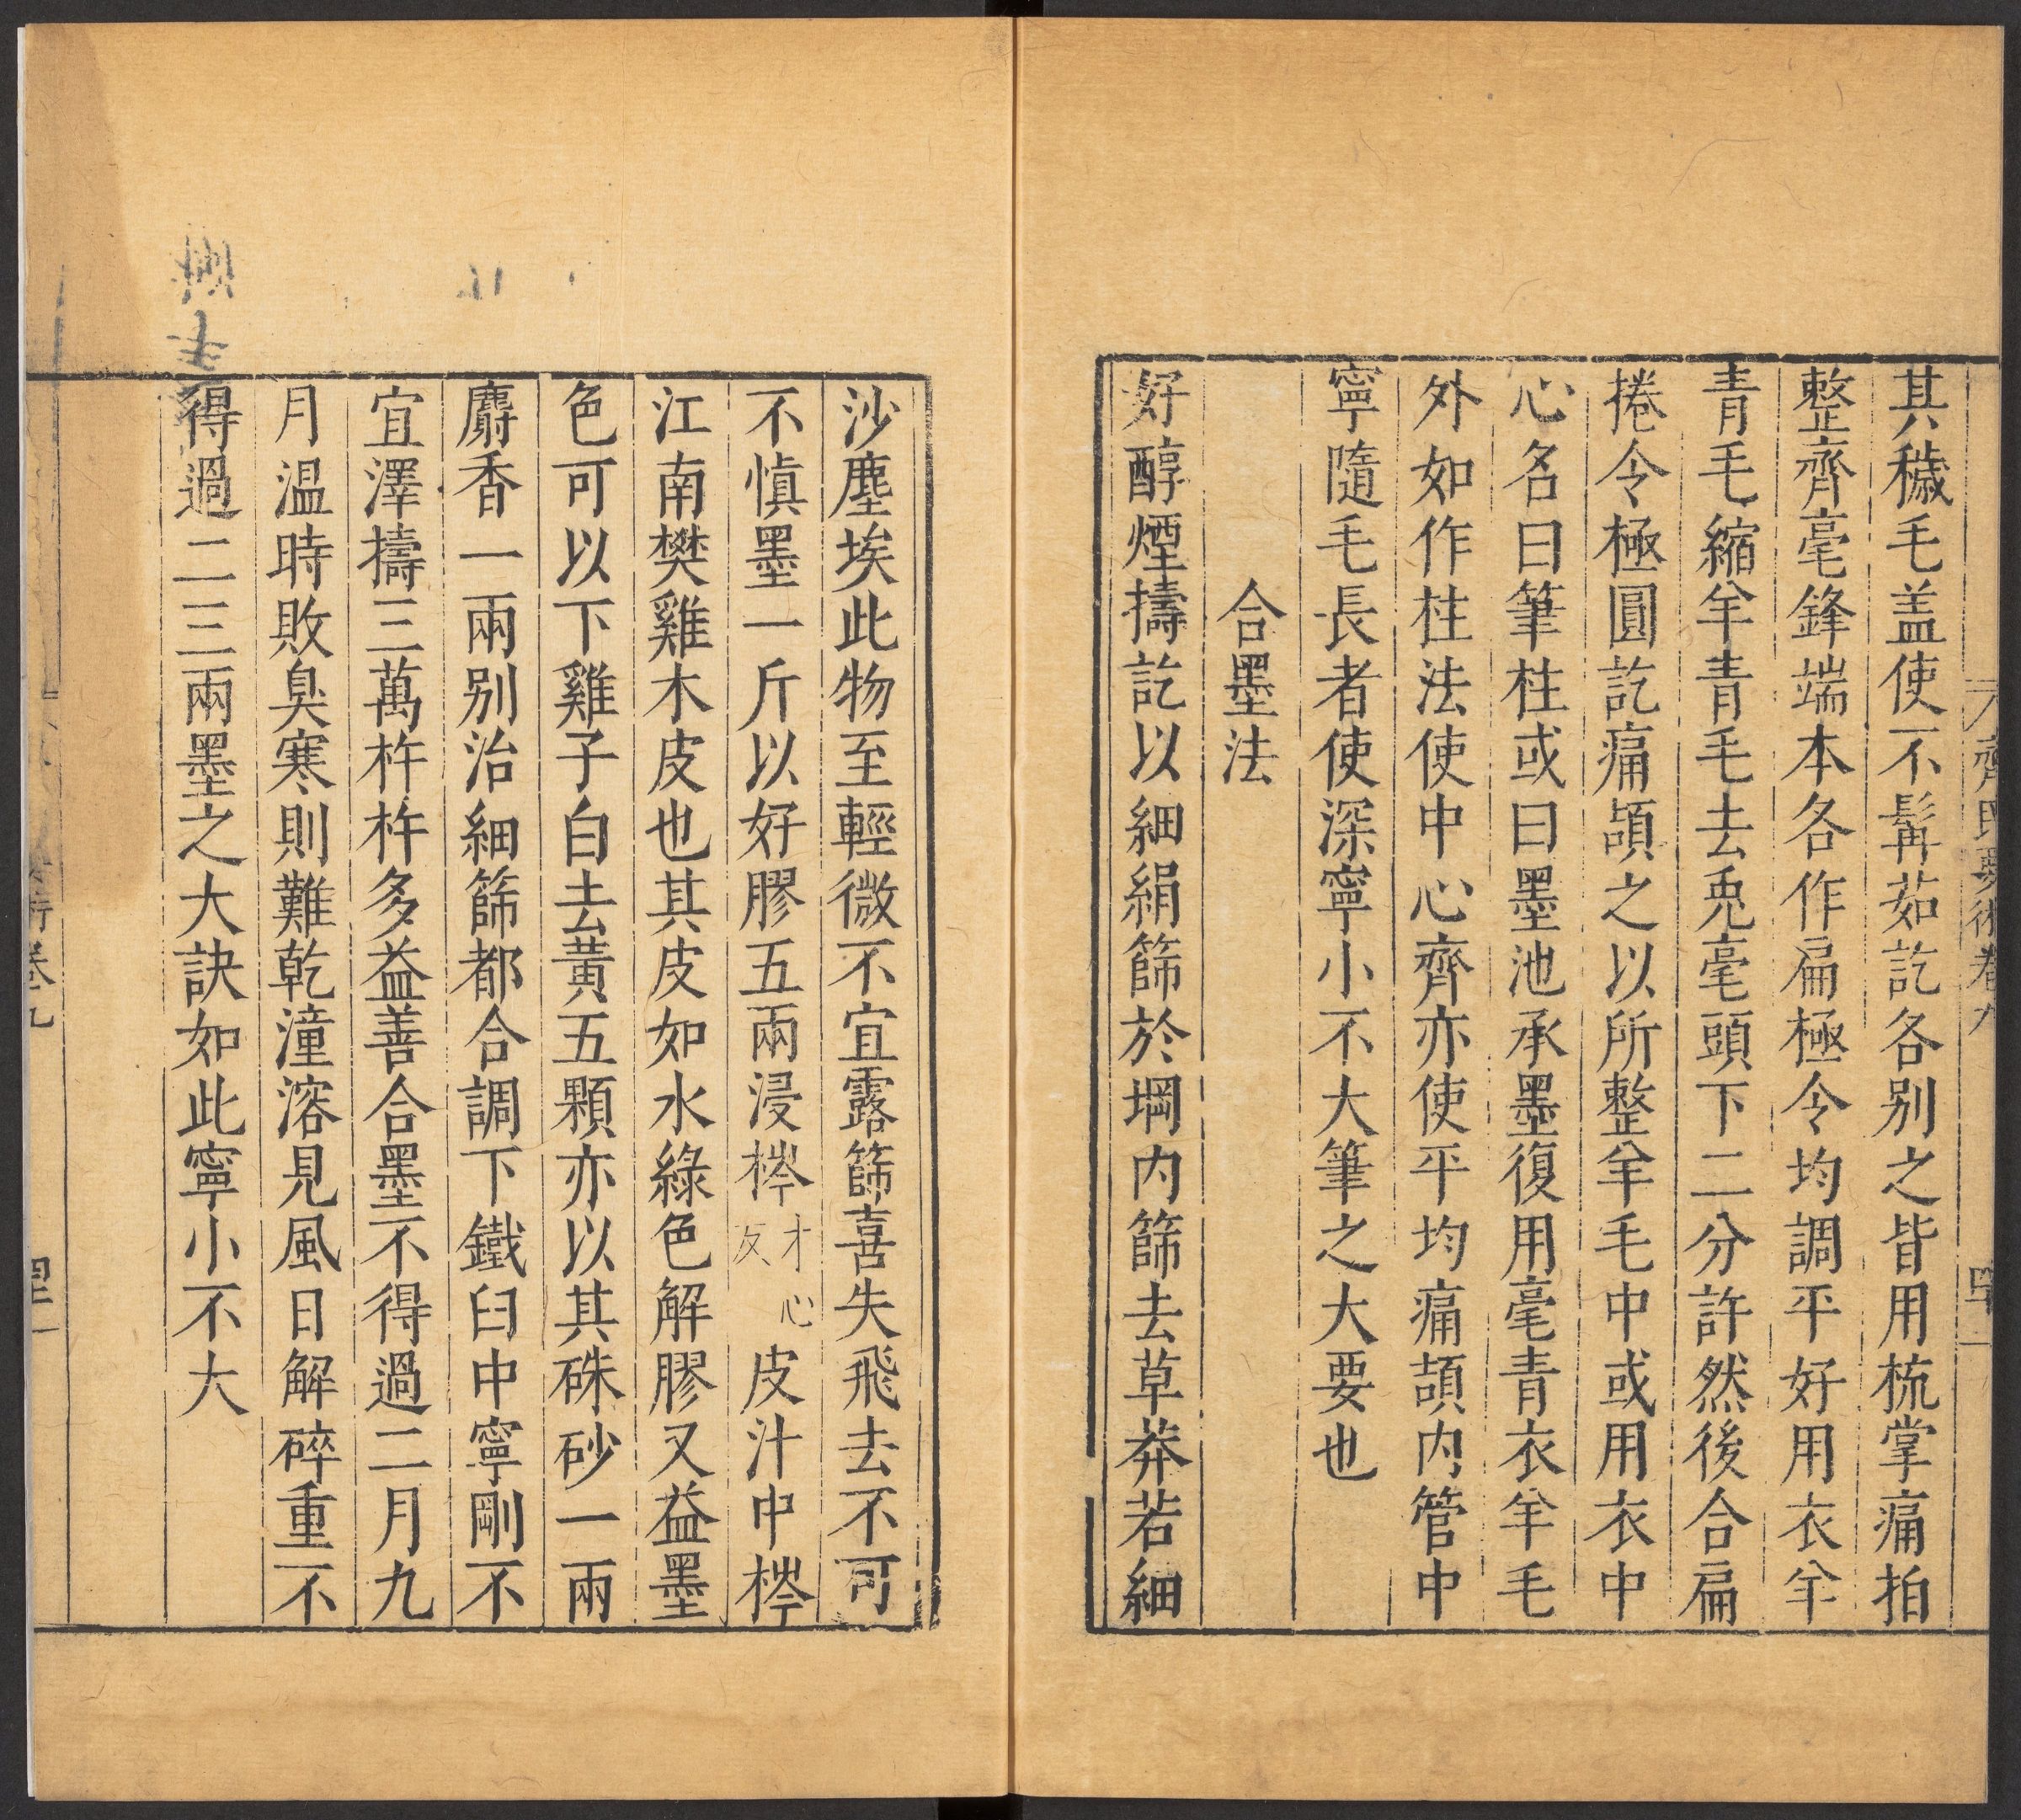 齊民要術卷九
其穢毛盖使不髯茹訖各别之皆用梳掌痛拍
整齊毫鋒端本各作扁極令均調平好用衣羊
青毛縮羊青毛去兎毫頭下二分許然後合扁
捲令極圓訖痛頡之以所整羊毛中或用衣中
心名曰筆柱或曰墨池承墨復用毫青衣羊毛
外如作柱法使中心齊亦使平均痛頡内管中
寧隨毛長者使深寧小不大筆之大要也
合墨法
好醇煙擣訖以細絹篩於堈内篩去草莽若細
沙塵埃此物至輕微不宜露篩喜失飛去不可
不慎墨一斤以好膠五兩浸梣才心反皮汁中梣
江南樊雞木皮也其皮如水綠色解膠又益墨
色可以下雞子白去黃五顆亦以其硃砂一兩
麝香一兩别治細篩都合調下鐵臼中寧剛不
宜澤擣三萬杵杵多益善合墨不得過二月九
月温時敗臭寒則難乾潼溶見風日解碎重不
得過二三兩墨之大訣如此寧小不大
卷九